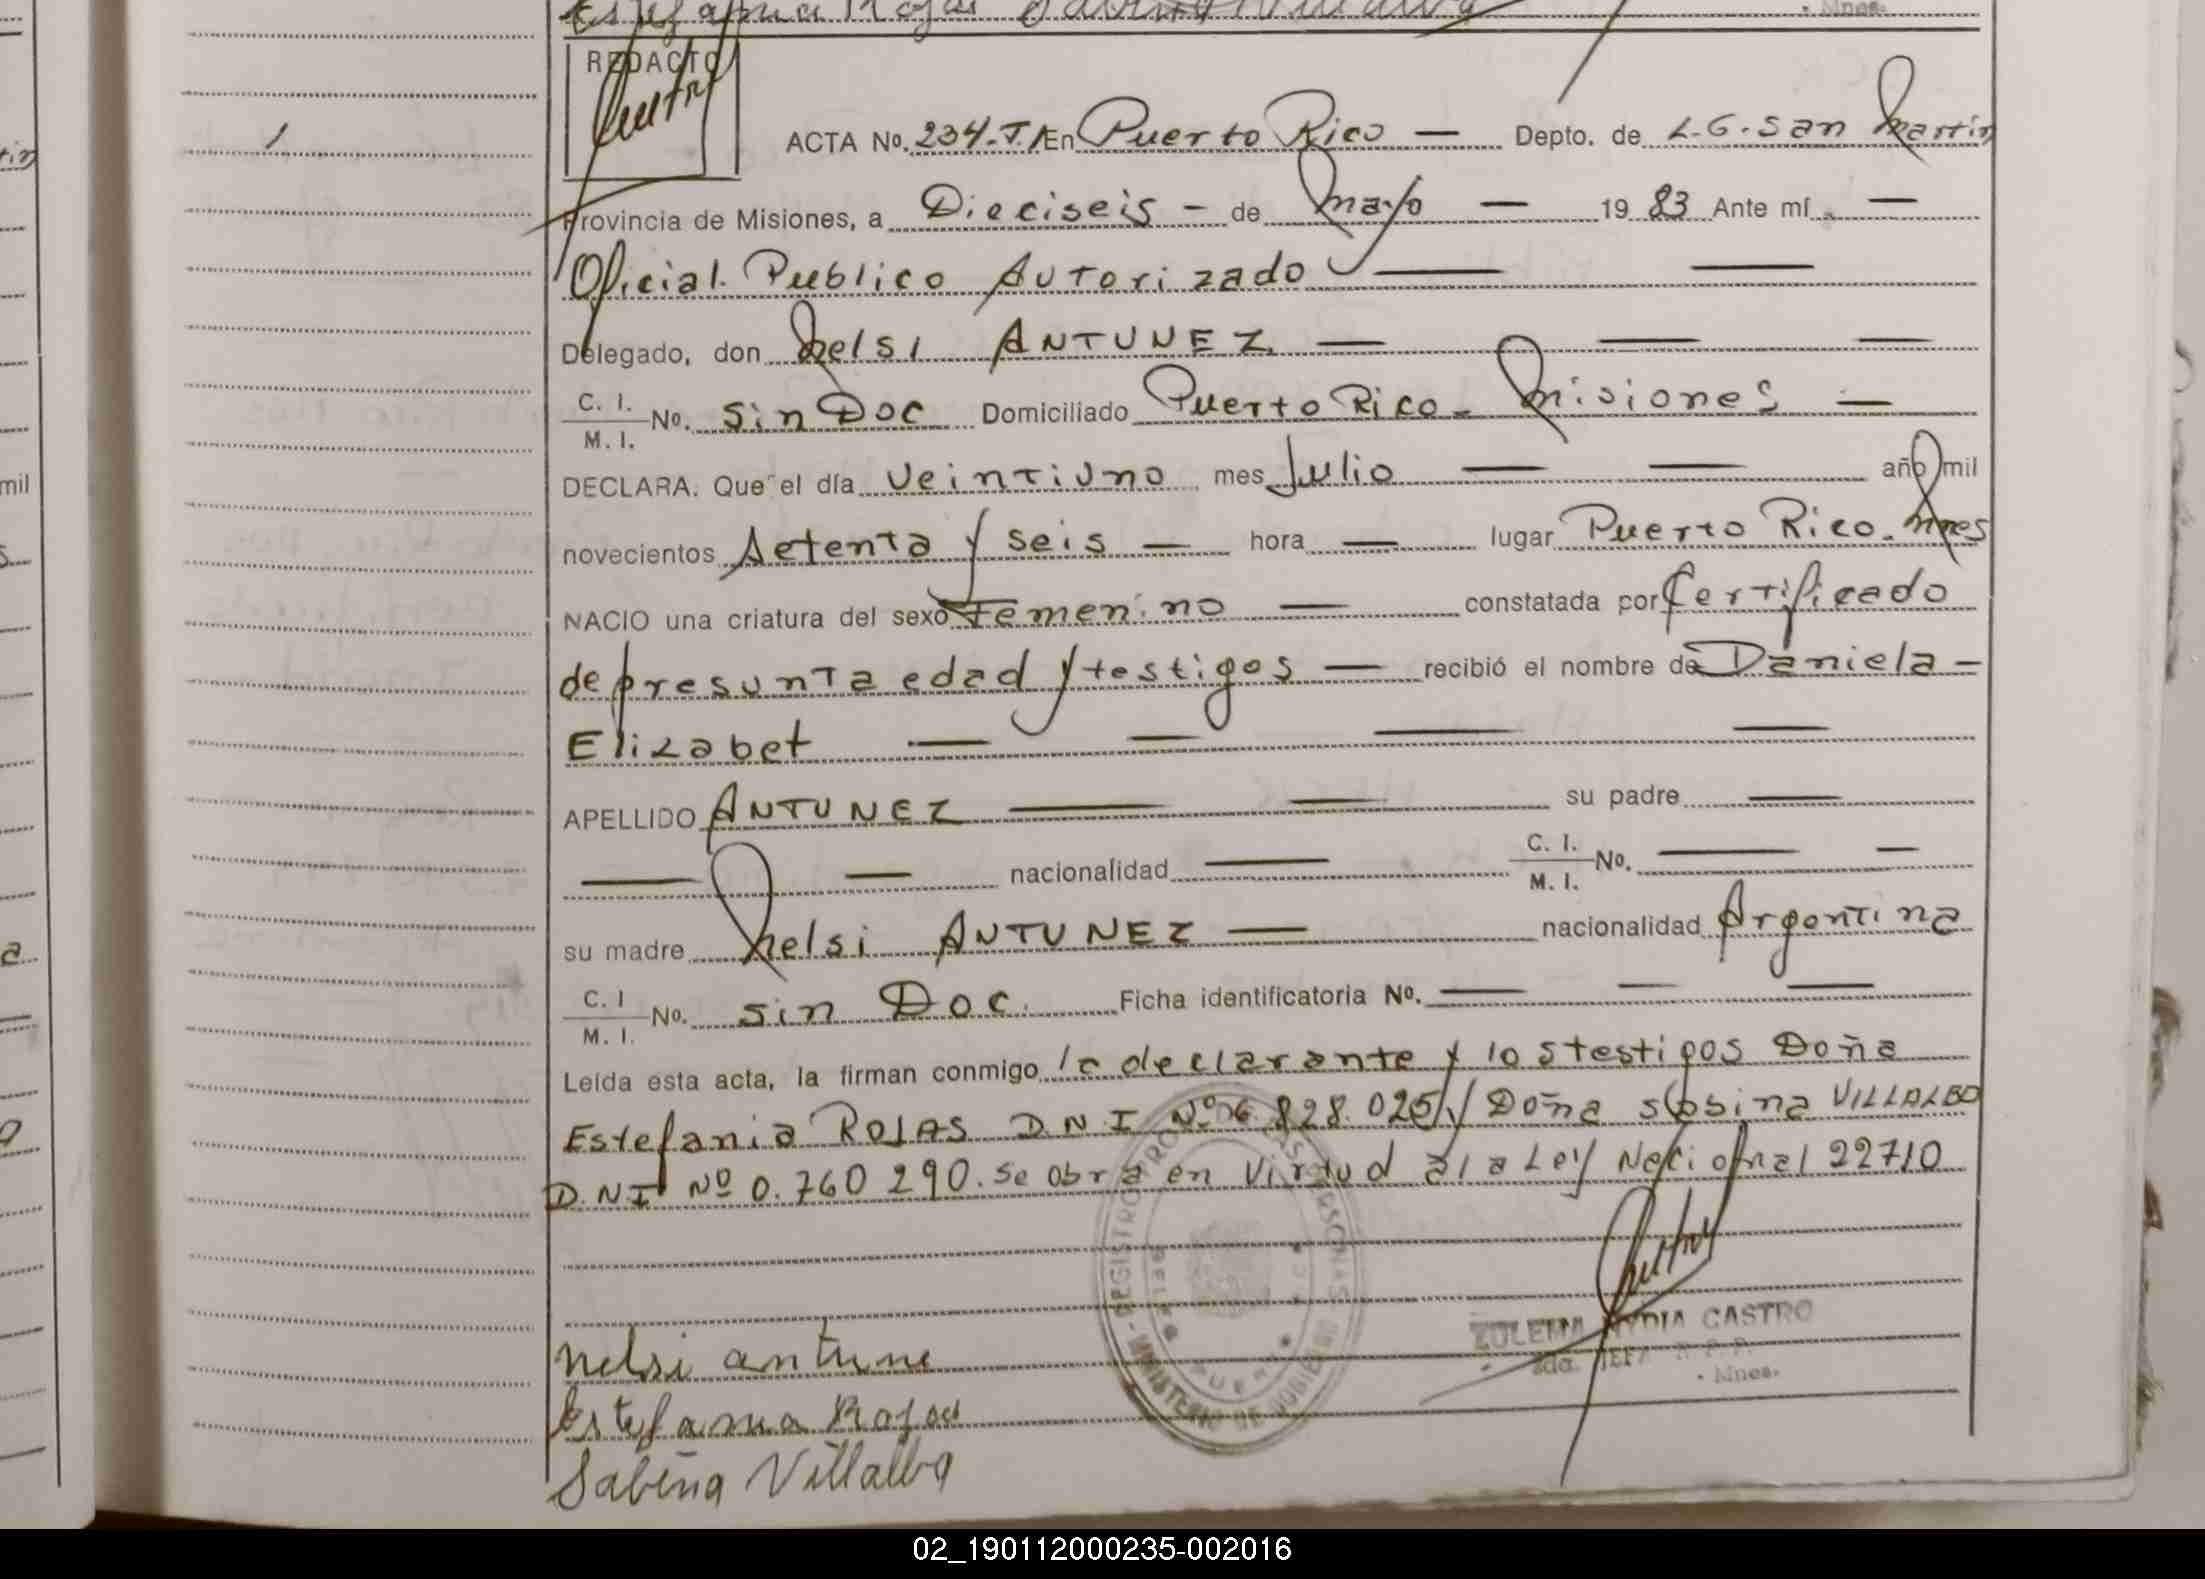 Estefania Rojas Sabina Villalba
Mnes.
REDACTO
ACTA No. 234. T. 1 En Puerto Rico — Depto. de L. G. San Martin
Provincia de Misiones, a Dieciseis - de Mayo — 19 83 Ante mí —
Oficial Publico Autorizado — —
Delegado, don Nelsi ANTUNEZ — — —
C. I. / M. I. No. Sin Doc Domiciliado Puerto Rico - Misiones —
DECLARA: Que el día veintiuno mes Julio — — año mil
novecientos Setenta y seis — hora — lugar Puerto Rico - Mnes
NACIO una criatura del sexo Femenino — constatada por Certificado
de presunta edad y testigos — recibió el nombre de Daniela —
Elizabet — — — —
APELLIDO ANTUNEZ — — su padre —
— — nacionalidad — C. I. / M. I. No. — —
su madre Nelsi ANTUNEZ — nacionalidad Argentina
C. I / M. I. No. sin Doc. Ficha identificatoria No. — — —
Leída esta acta, la firman conmigo la declarante y los testigos Doña
Estefania ROJAS D N I Nº 6.828.025 y Doña Sabina VILLALBA
D. N I Nº 0.760 290. se obra en Virtud a la Ley Nacional 22710
REGISTRO DE LAS PERSONAS
MINISTERIO DE GOBIERNO
ZULEMA NYDIA CASTRO
2da. JEFA R. P. P.
Mnes.
Nelsi antune
Estefania Rojas
Sabina Villalba
02_190112000235-002016